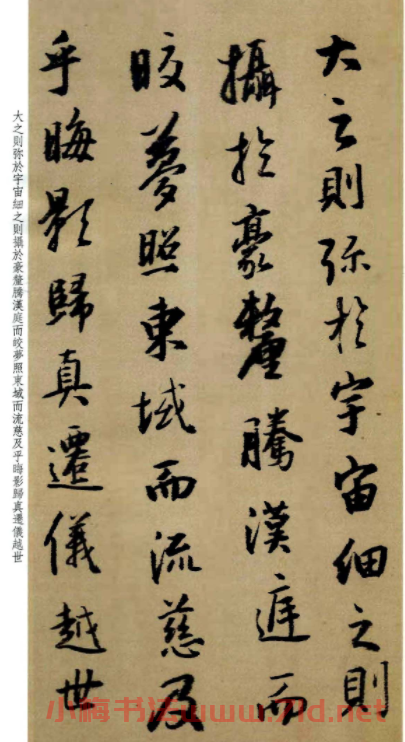 大之則弥於宇宙細之則
攝於豪釐騰漢庭而
皎夢照東域而流慈及
乎晦影歸真遷儀越世
大之則弥於宇宙細之則攝於豪釐騰漢庭而皎夢照東域而流慈及乎晦影歸真遷儀越世
小梅书法www.71d.net